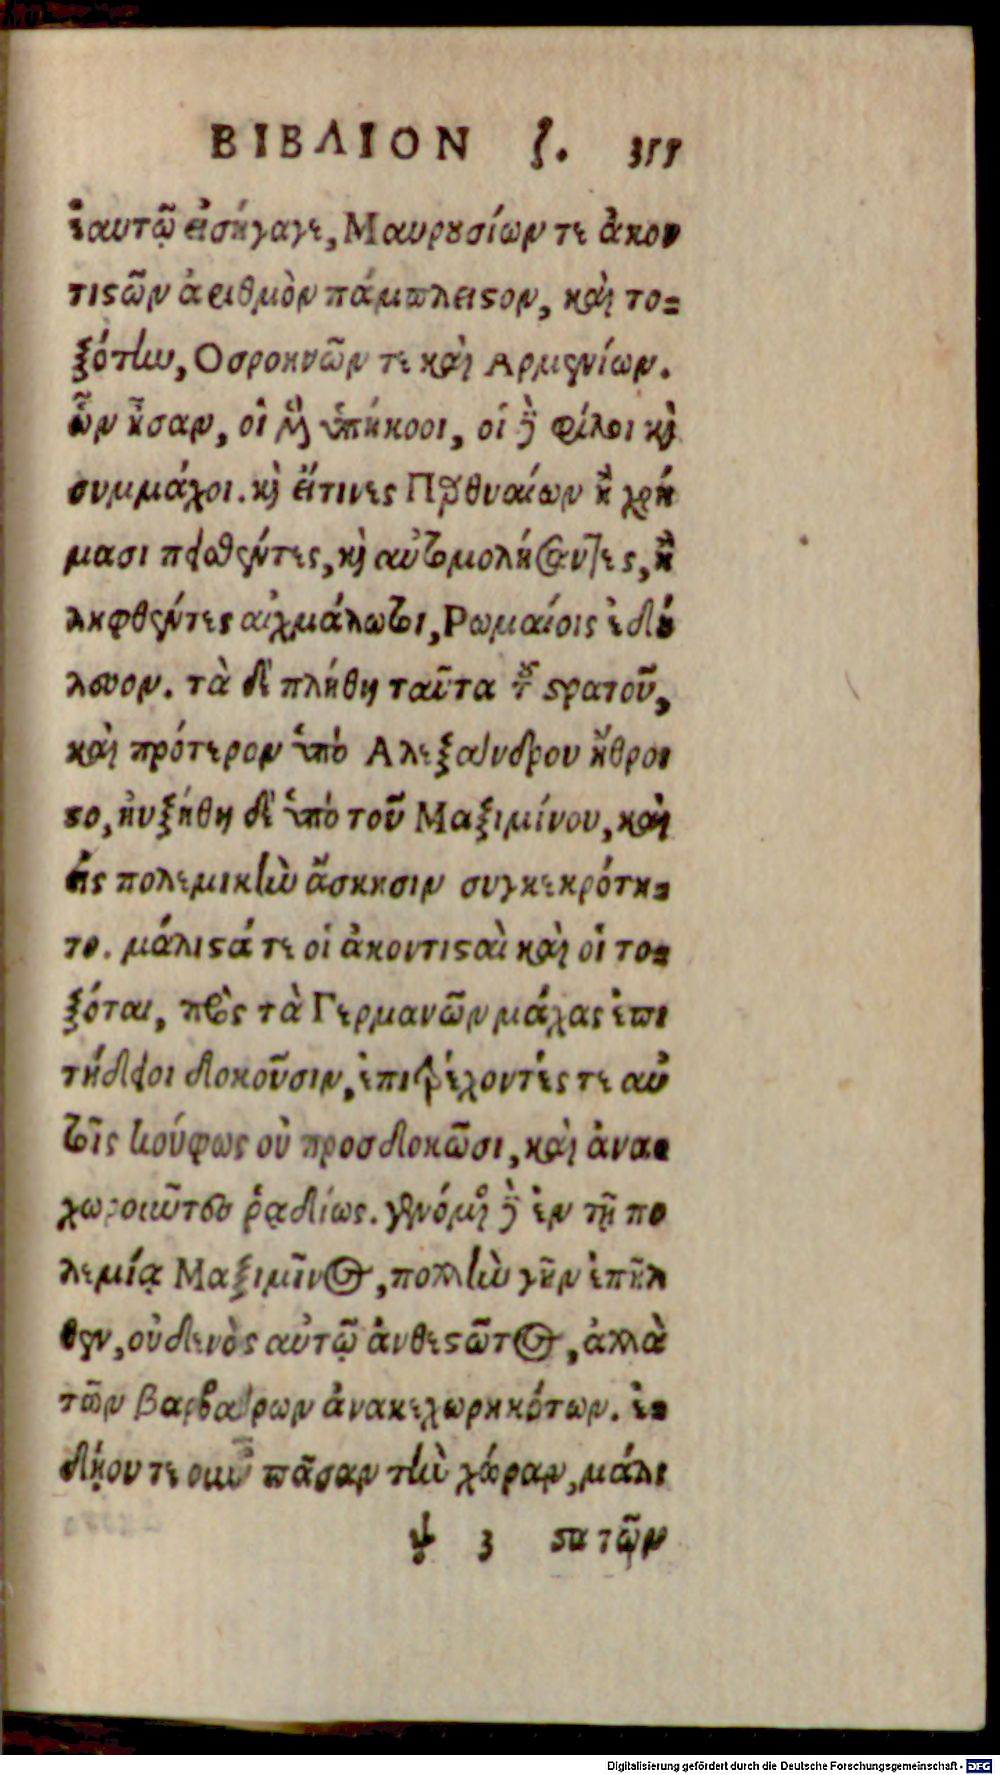 ΒΙΒΛΙΟΝ ζ. 355
ἑαυτῷ εἰσήγαγε, Μαυρουσίων τε ἀκον
τιστῶν ἀριθμὸν πάμπλειστον, καὶ το-
ξότων, Οσροηνῶν τε καὶ Αρμενίων.
ὧν ἦσαν, οἱ μὲν ὑπήκοοι, οἱ δὲ φίλοι καὶ
συμμάχοι. καὶ εἴτινες Παρθυαίων ἢ χρή
μασι πεισθέντες, καὶ αὐτομολήσαντες, ἢ
ληφθέντες αἰχμάλωτοι, Ρωμαίοις ἐδού
λευον. τὰ δὲ πλήθη ταῦτα τοῦ στρατοῦ,
καὶ πρότερον ὑπὸ Αλεξάνδρου ἤθροι
στο, ηὐξήθη δὲ ὑπὸ τοῦ Μαξιμίνου, καὶ
εἰς πολεμικὴν ἄσκησιν συγκεκρότη-
το. μάλιστά τε οἱ ἀκοντισταὶ καὶ οἱ το-
ξόται, πρὸς τὰ Γερμανῶν μάχας ἐπι
τήδειοι δοκοῦσιν, ἐπιτρέχοντές τε αὐ
τοῖς κούφως οὐ προσδοκῶσι, καὶ ἀνα-
χωροῦντες ῥᾳδίως. γενόμενος δὲ ἐν τῇ πο
λεμίᾳ Μαξιμῖνος, πολλὴν γῆν ἐπῆλ
θεν, οὐδενὸς αὐτῷ ἀνθεστῶτος, ἀλλὰ
τῶν βαρβάρων ἀνακεχωρηκότων. ἐ-
δῄου τε οὖν πᾶσαν τὴν χώραν, μάλι
ψ 3 στα τῶν
Digitalisierung gefördert durch die Deutsche Forschungsgemeinschaft - DFG